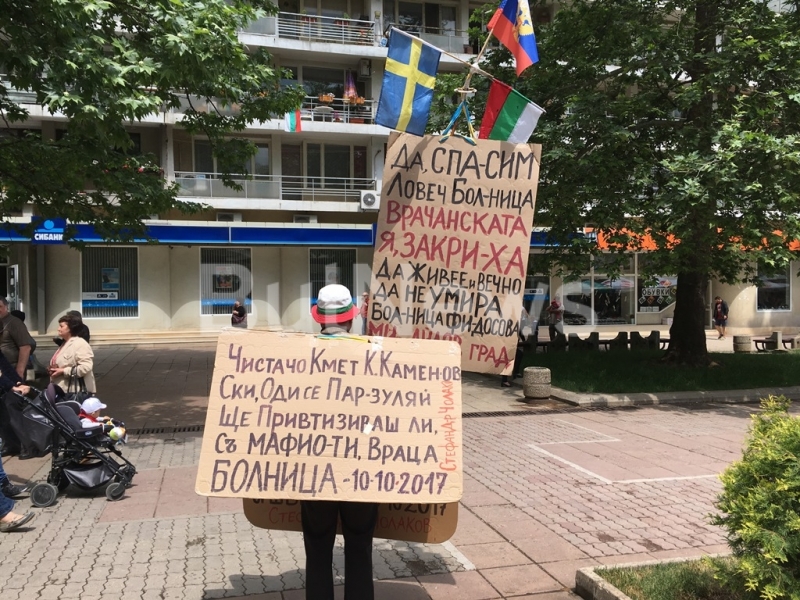 СИБАНК
ДА, СПА-СИМ
ЛОВЕЧ БОЛ-НИЦА
ВРАЧАНСКАТА
Я, ЗАКРИ-ХА
ДА ЖИВЕЕ И ВЕЧНО
ДА НЕ УМИРА
БОЛ-НИЦА ФИ-ДОСОВА
ГРАД
ЧИСТАЧО КМЕТ К. КАМЕНОВ
СКИ, ОДИ СЕ ПАР-ЗУЛЯЙ
ЩЕ ПРИВТИЗИРАШ ЛИ,
СЪ МАФИО-ТИ, ВРАЦА
БОЛНИЦА - 10-10.2017
2017